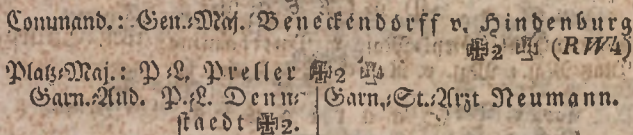 Command.: Gen.-Maj. Beneckendorff v. Hindenburg
2 (RW4)
Platz-Maj.: P.-L. Preller 2
Garn.-Aud. P.-L. Denn- | Garn.-St.-Arzt Neumann.
staedt 2.